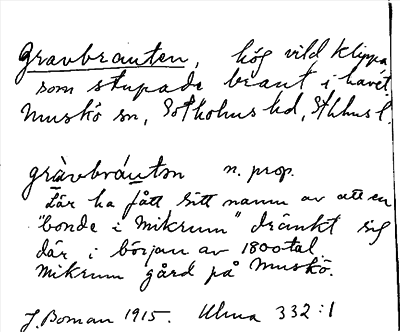 Gravbrauten, hög vild klippa
som stupade brant i havet.
Muskö sn, Sotholms hd, Sthlms l.
gràvbráutən n. prop.
Lär ha fått sitt namn av att en
"bonde i Mikrum" dränkt sig
där i början av 1800tal
Mikrum gård på Muskö.
J. Boman 1915. Ulma 332:1